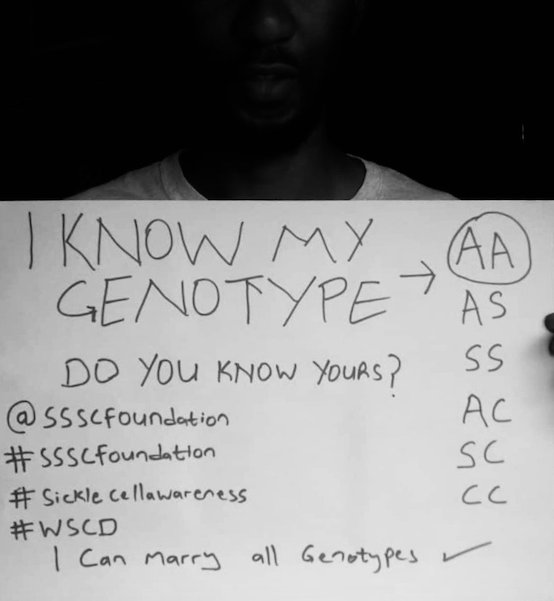 I KNOW MY
GENOTYPE → AA
AS
DO YOU KNOW YOURS? SS
@SSSCfoundation AC
#SSSCfoundation SC
#Sicklecellawareness CC
#WSCD
I Can Marry all Genotypes ✓